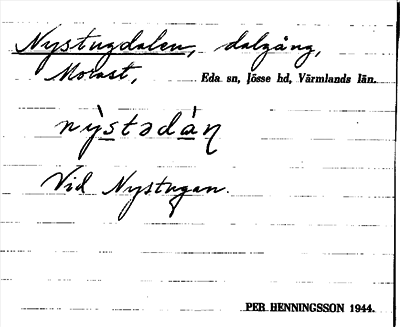 Nystugdalen, dalgång,
Molast, Eda sn, Jösse hd, Värmlands län.
nỳstədàn
Vid Nystugan.
PER HENNINGSSON 1944.